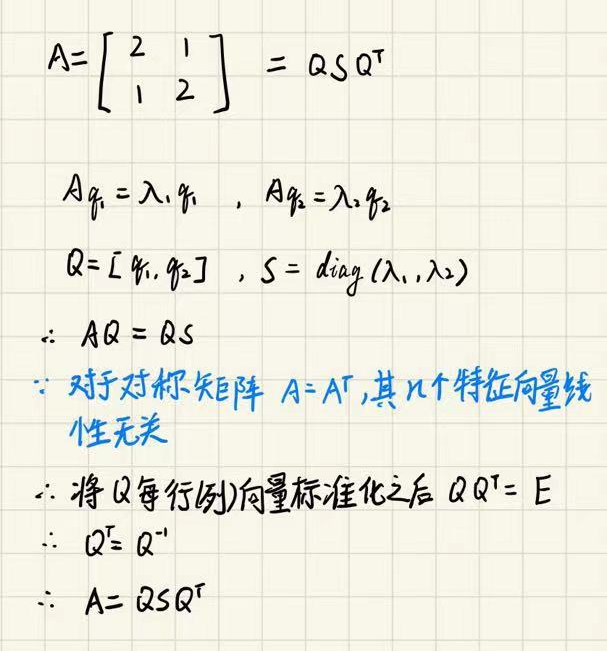 A = [ 2 1 ; 1 2 ] = QSQᵀ
Aq₁ = λ₁q₁ , Aq₂ = λ₂q₂
Q = [q₁, q₂] , S = diag(λ₁, λ₂)
∴ AQ = QS
∵ 对于对称矩阵 A = Aᵀ, 其n个特征向量线
性无关
∴ 将Q每行(列)向量标准化之后 QQᵀ = E
∴ Qᵀ = Q⁻¹
∴ A = QSQᵀ